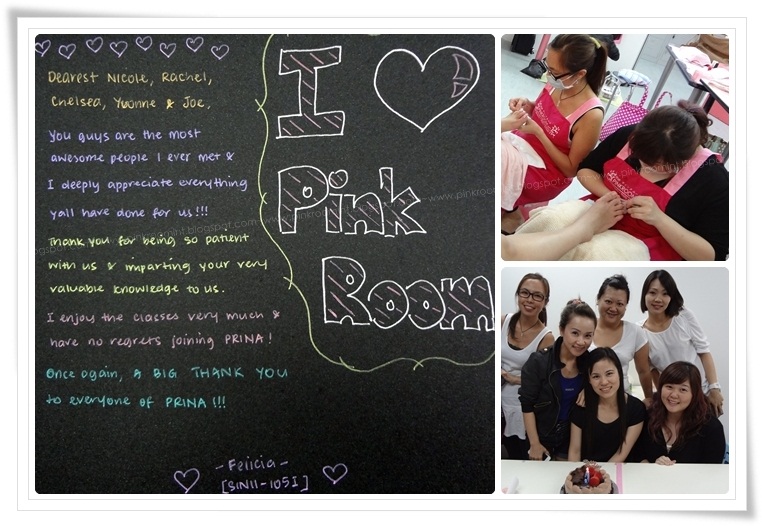 Dearest Nicole, Rachel,
Chelsea, Yvonne & Joe,
You guys are the most
awesome people I ever met &
I deeply appreciate everything
yall have done for us!!!
Thank you for being so patient
with us & imparting your very
valuable knowledge to us.
I enjoy the classes very much &
have no regrets joining PRINA!
Once again, A BIG THANK YOU
to everyone of PRINA!!!
- Felicia -
[SIN11-1051]
I
Pink
Room
www.pinkroomint.blogspot.com